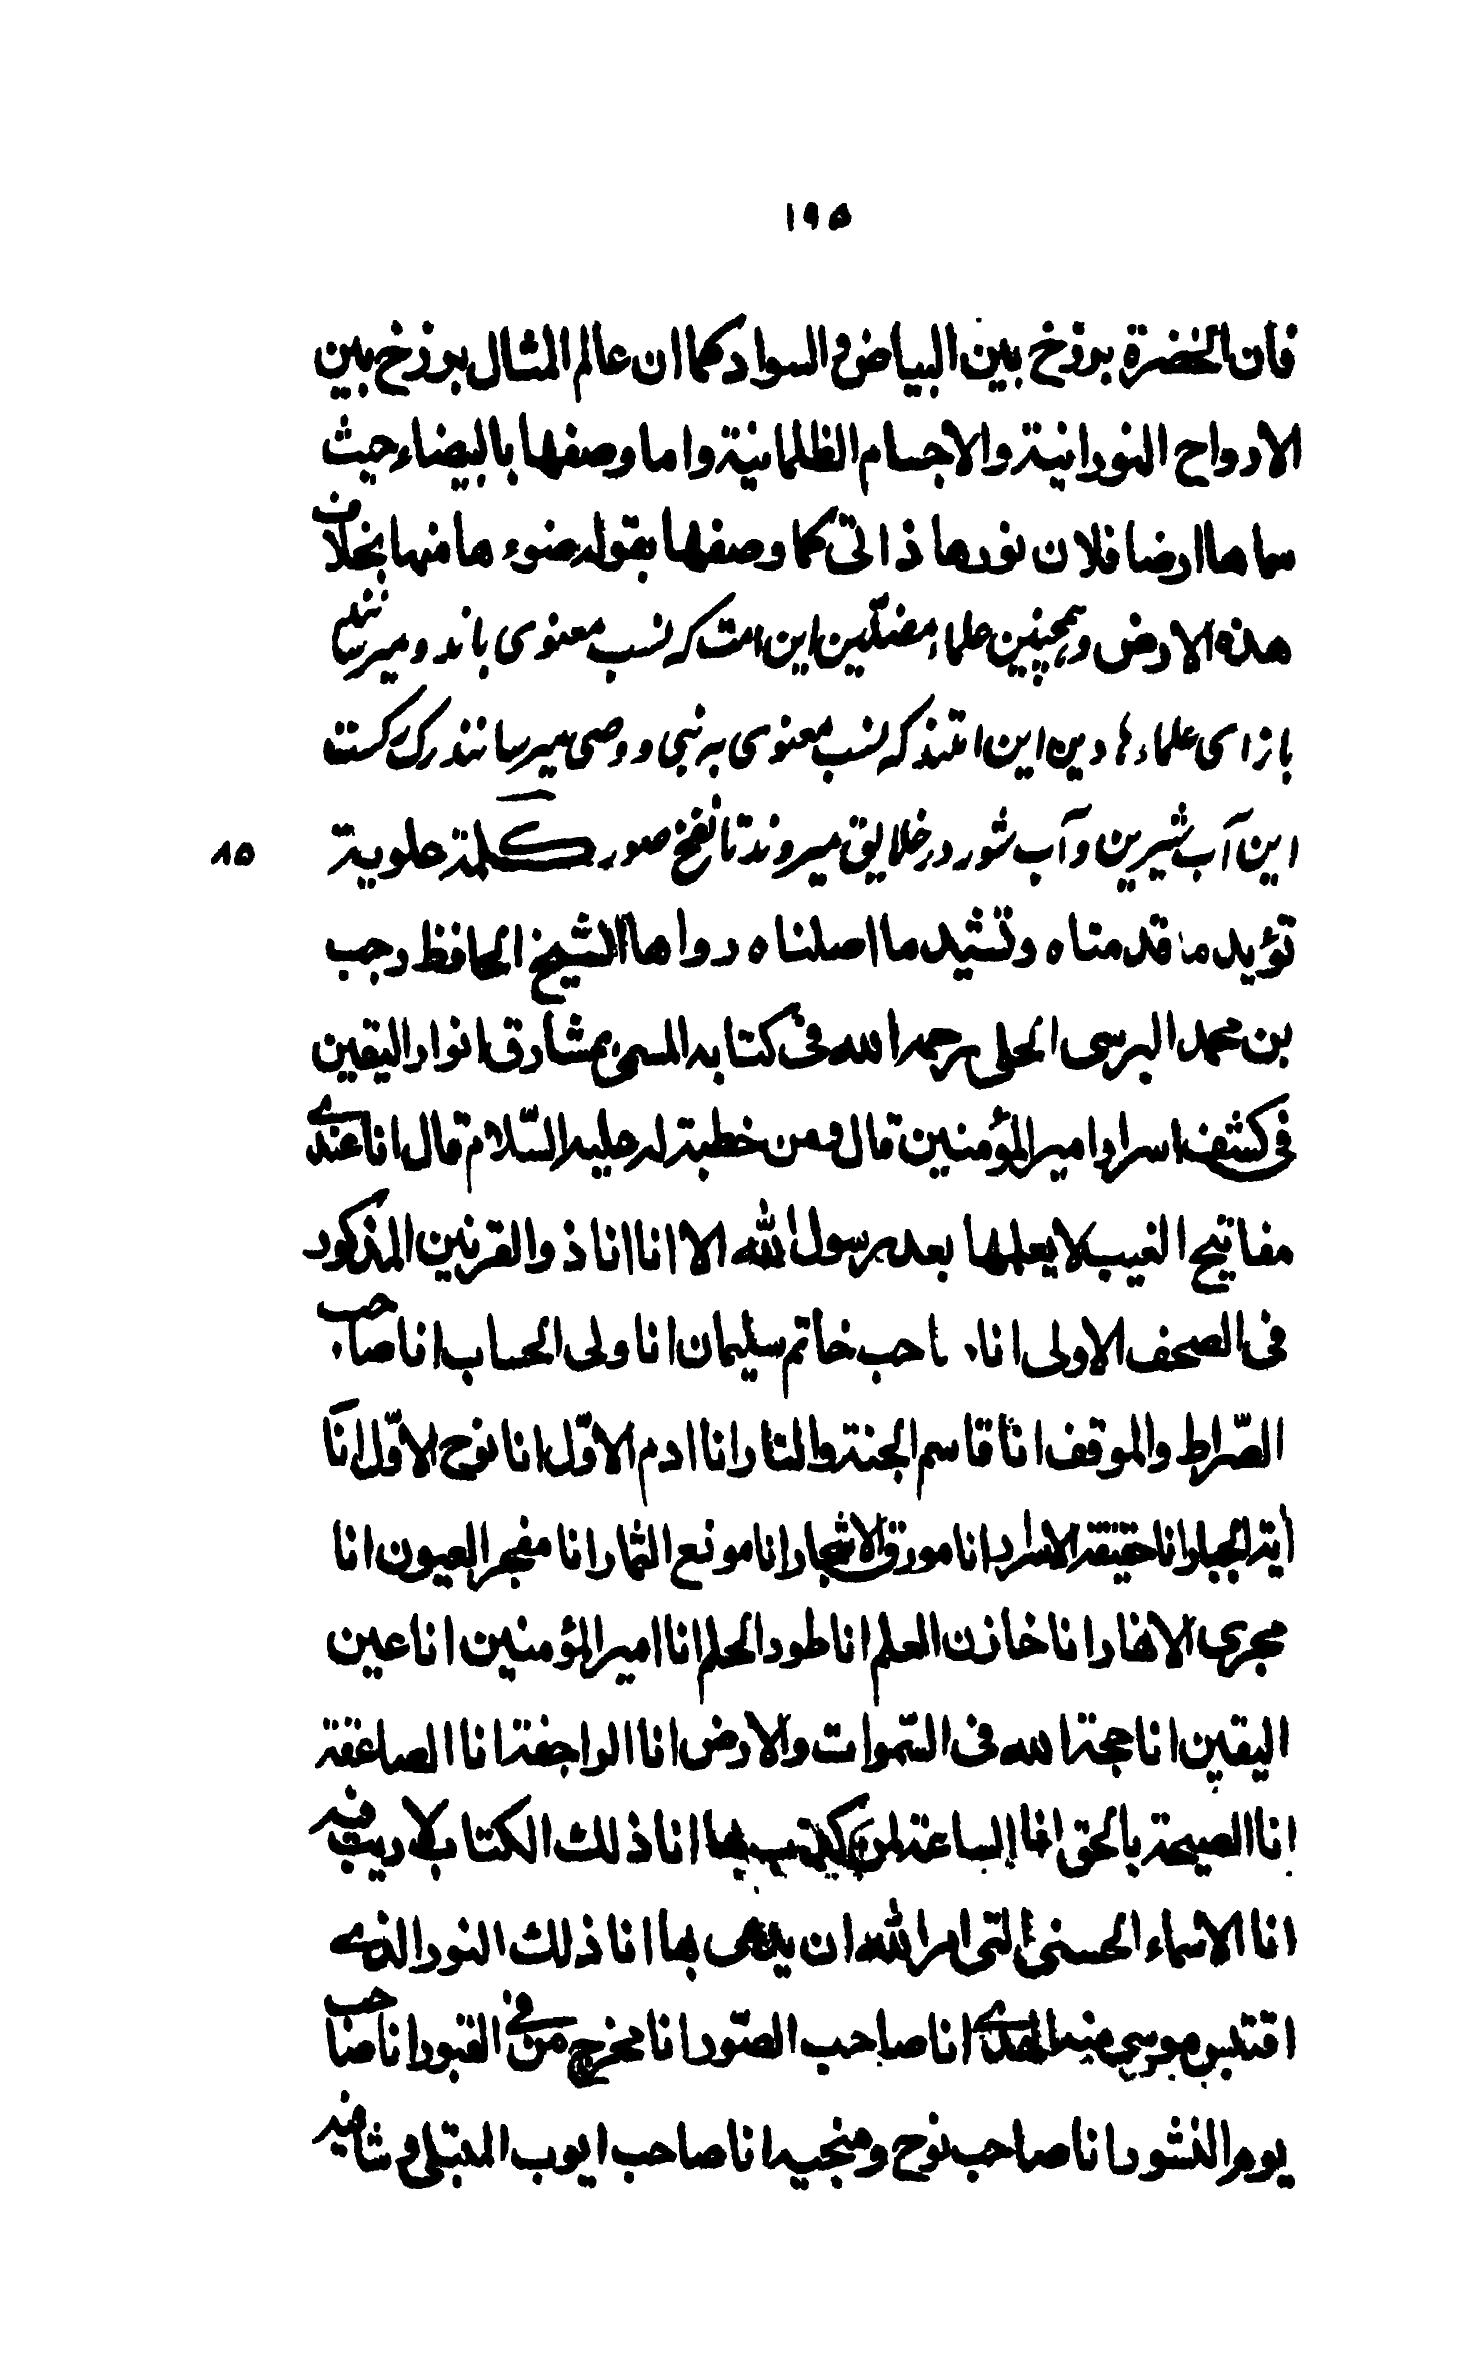 ١٩٥
فان الخضرة برزخ بين البياض و السواد كما ان عالم المثال برزخ بين
الارواح النورانية والاجسام الظلمانية واما وصفها بالبيضاء حيث
سماها ارضا فلان نورها ذاتى كما وصفها بقوله ضوءها منها بخلاف
هذه الارض و همچنين علماء مضلين اين امت كه نسب معنوى باند و ميرسانند
بازاى علماء هادين اين امتند كه نسب معنوى به نبى و وصى ميرسانند رگ رگست
اين آب شيرين و آب شور در خلايق ميروند تا نفخ صور كلمة علوية
٨٥
تؤيد ما قدمناه وتشيد ما اصلناه رواها الشيخ الحافظ رجب
بن محمد البرسى الحلى رحمه الله فى كتابه المسمى بمشارق انوار اليقين
فى كشف اسرار امير المؤمنين قال ومن خطبة له عليه السّلام قال انا عندى
مفاتيح الغيب لا يعلمها بعد رسول الله الا انا انا ذو القرنين المذكور
فى الصحف الاولى انا صاحب خاتم سليمان انا ولى الحساب انا صاحب
الصّراط والموقف انا قاسم الجنة والنار انا ادم الاوّل انا نوح الاوّل انا
اية الجبار انا حقيقة الاسرار انا مورق الاشجار انا مونع الثمار انا مفجر العيون انا
مجرى الانهار انا خازن العلم انا طود الحلم انا امير المؤمنين انا عين
اليقين انا حجة الله فى السّموات والارض انا الراجفة انا الصاعقة
انا الصيحة بالحق انا الساعة لمن كذب بها انا ذلك الكتاب لا ريب فيه
انا الاسماء الحسنى التى امر الله ان يدعى بها انا ذلك النور الذى
اقتبس موسى منه الهدى انا صاحب الصّور انا مخرج من فى القبور انا صاحب
يوم النشور انا صاحب نوح و منجيه انا صاحب ايوب المبتلى و شافيه